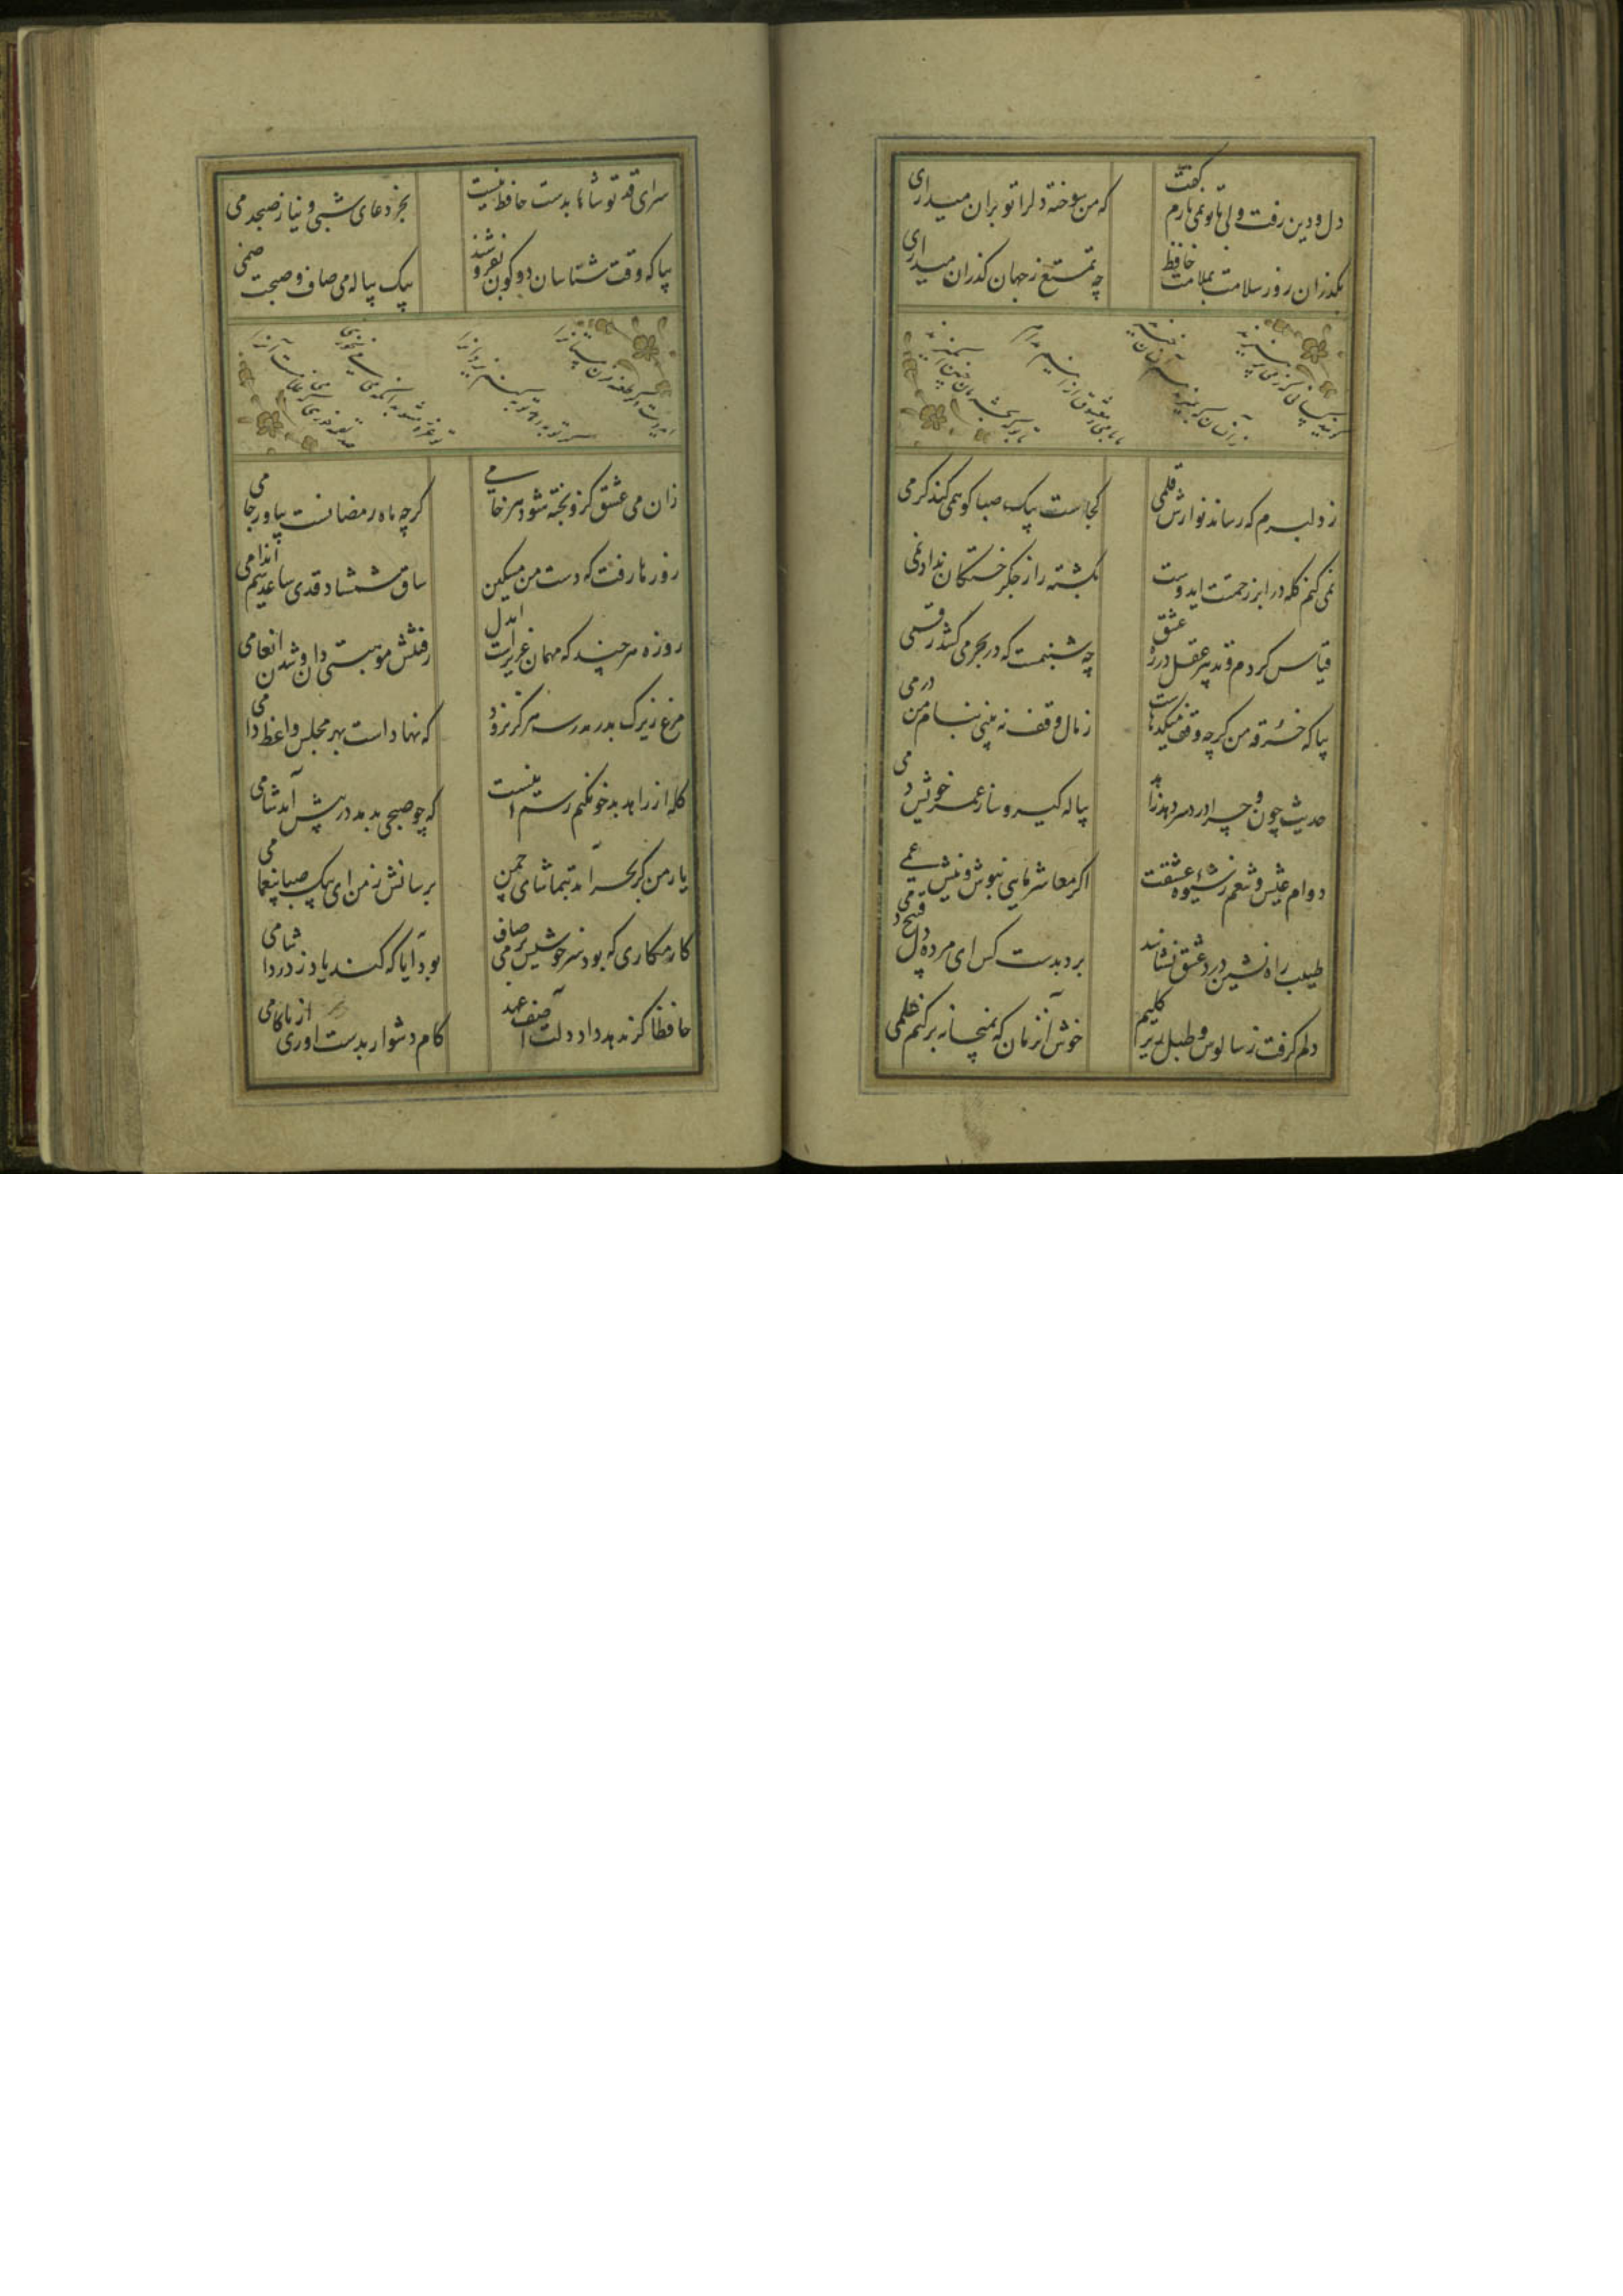 دل و دین رفت ولی با تو نمی یارم گفت
که من سوخته دل را تو بران میداری
بگذران روز سلامت بملامت حافظ
چه تمتع ز جهان گذران میداری
گویند کسانی که ز می پرهیزند
زانسان که بمیرند بدانسان خیزند
ما با می و معشوق از انیم مدام
تا بو که بحشرمان چنین انگیزند
ز دلبرم که رساند نوازش قلمی
کجاست پیک صبا کو همی کند کرمی
نمی کنم گله در ابر رحمت ای دوست
بکشته زار جگر خستگان نداد نمی
قیاس کردم و تدبیر عقل در ره عشق
چه شبنمست که در بحر می کشد رقمی
بیا که خرقه من گرچه وقف میکدهاست
ز مال وقف نه بینی بنام من درمی
حدیث چون و چرا درد سر دهد زاید
پیاله گیر و بیاسا ز عمر خویش دمی
دوام عیش و تنعم نه شیوه عشقست
اگر معاشر مایی بنوش و نیش غمی
طبیب راه نشین درد عشق نشناسد
برو بدست کن ای مرده دل مسیح دمی
دلم گرفت ز سالوس و طبل زیر گلیم
خوش آنزمان که بمیخانه بر کنم علمی
سزای قدر تو شاها بدست حافظ نیست
بجز دعای شبی و نیاز صبحدمی
بیا که وقت شناسان دو کون نفروشند
بیک پیاله می صاف و صحبت صنمی
گر می نخوری طعنه مزن مستانرا
تو غره مشو بدانکه می می نخوری
زان می عشق کزو پخته شود هر خامی
گرچه ماه رمضانست بیاور جامی
روزها رفت که دست من مسکین نگرفت
ساق شمشاد قدی ساعد سیم اندامی
روزه هر چند که مهمان عزیزست ایدل
رفتنش موهبتی دان و شدن انعامی
مرغ زیرک بدر مدرسه هرگز نرود
که نهادست بهر مجلس واعظ دامی
گله از زاهد بدخو نکنم رسم اینست
که چو صبحی بدمد در پیش آید شامی
یار من گر بخرامد بتماشای چمن
برسانش ز من ای پیک صبا پیغامی
کو حریفی که بود سرخوشیش می صاف
بود آیا که کند یاد ز درد آشامی
حافظا گر ندهد داد دلت آصف عهد
کام دشوار بدست اوری از ناکامی